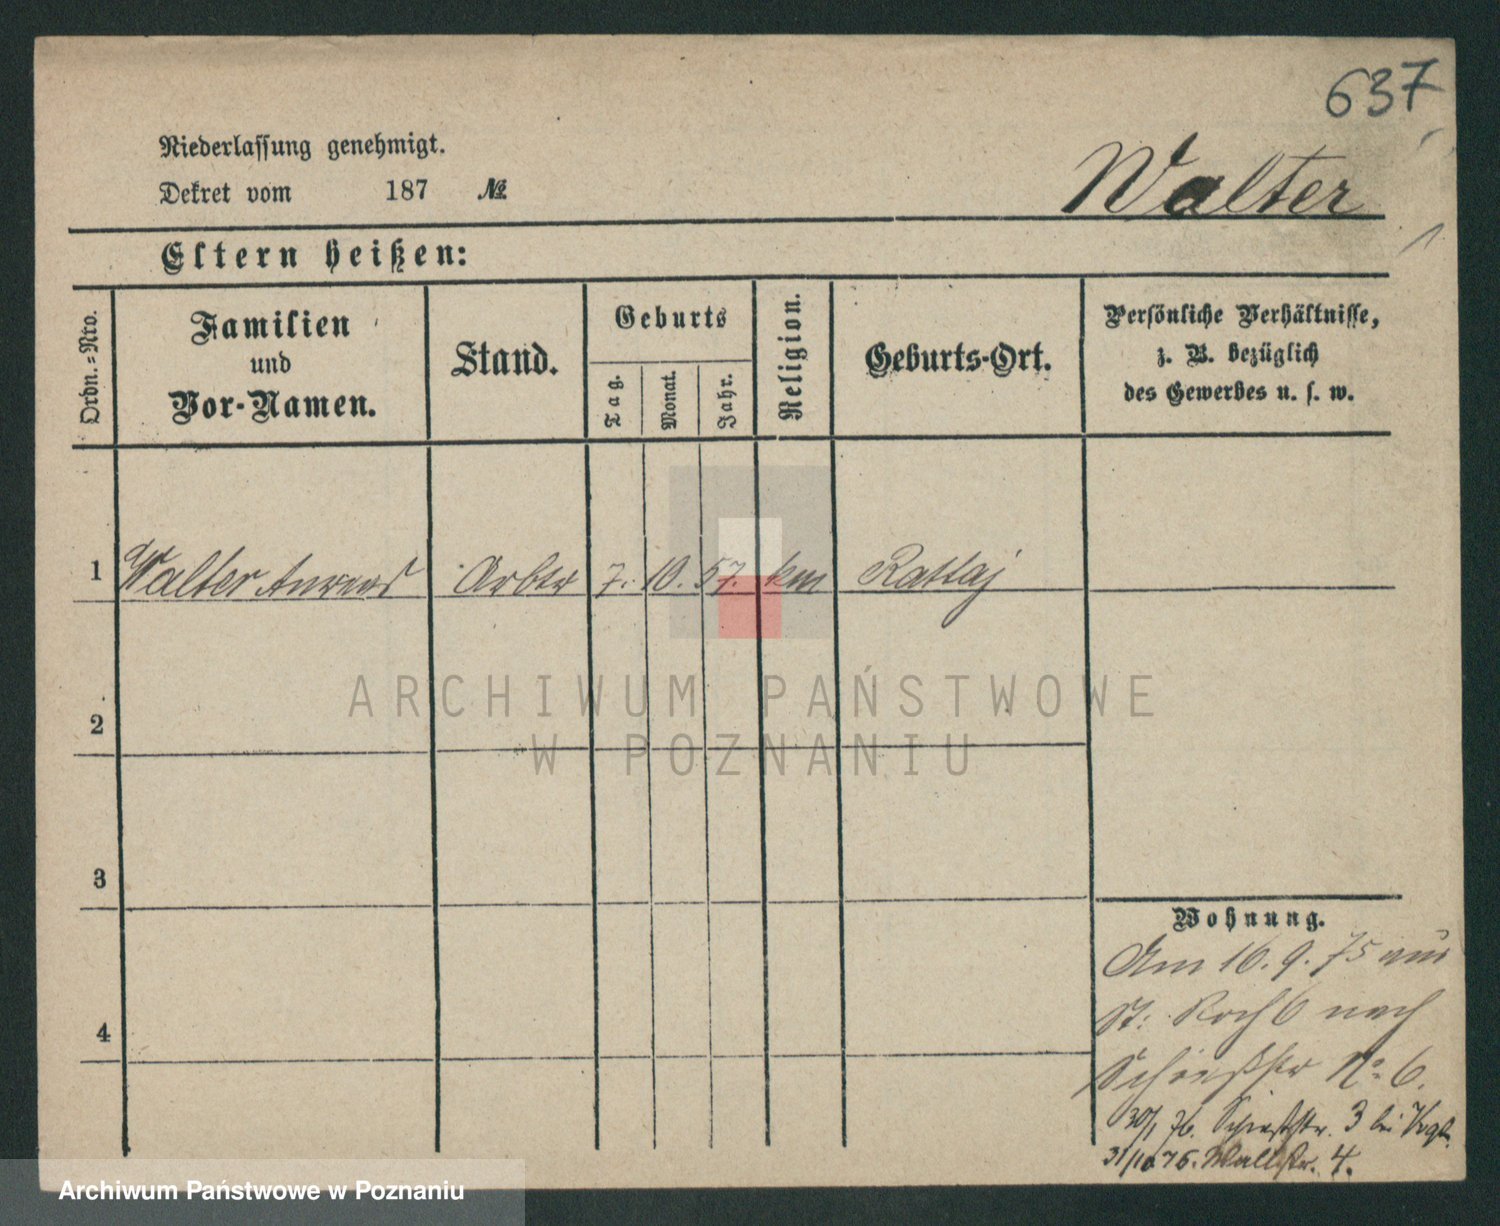 637
Niederlassung genehmigt.
Dekret vom 187 №
Walter
Eltern heißen:
Ordn.-Nro.
Familien
und
Vor-Namen.
Stand.
Geburts
Tag.
Monat.
Jahr.
Religion.
Geburts-Ort.
Persönliche Verhältnisse,
z. B. bezüglich
des Gewerbes u. s. w.
1 Walter Andreas Arbtr 7. 10. 57. km Rattaj
ARCHIWUM PAŃSTWOWE
W POZNANIU
2
3
4
Wohnung.
Am 16. 9. 75 aus
St: Roch 6 nach
Schießstr No 6.
30/1 76. Schießstr. 3 bei
31/10 76. Wallstr. 4.
Archiwum Państwowe w Poznaniu